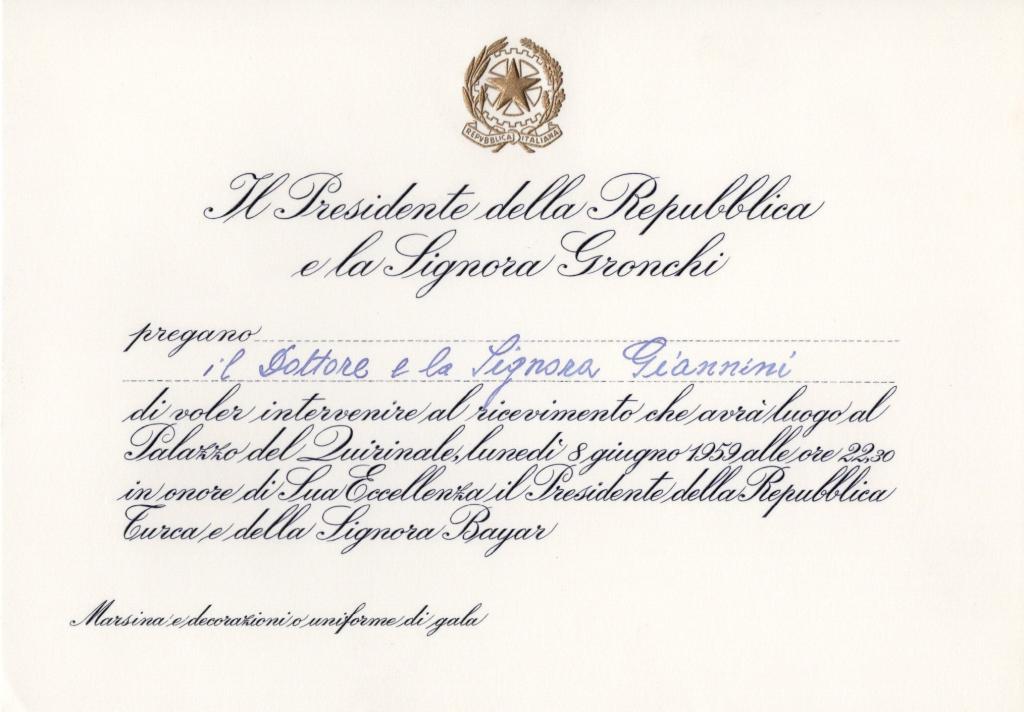 REPVBBLICA ITALIANA
Il Presidente della Repubblica
e la Signora Gronchi
pregano
il Dottore e la Signora Giannini
di voler intervenire al ricevimento che avrà luogo al
Palazzo del Quirinale, lunedì 8 giugno 1959 alle ore 22,30
in onore di Sua Eccellenza il Presidente della Repubblica
Turca e della Signora Bayar
Marsina e decorazioni o uniforme di gala